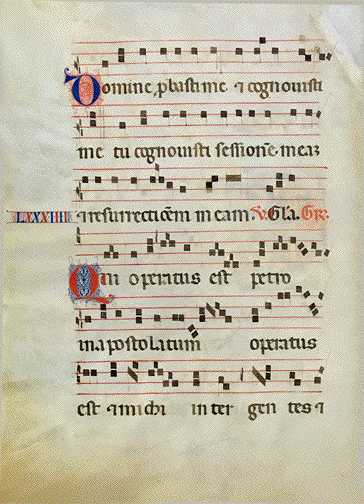 Domine p̱basti me ⁊ cognouisti
me tu cognouisti sessionē meaz
LXXXIIII ⁊ resurrectiōēm meam. V. Gl̄a. Gr̄.
Qui operatus est petro
in apostolatum operatus
est ⁊ michi inter gentes ⁊